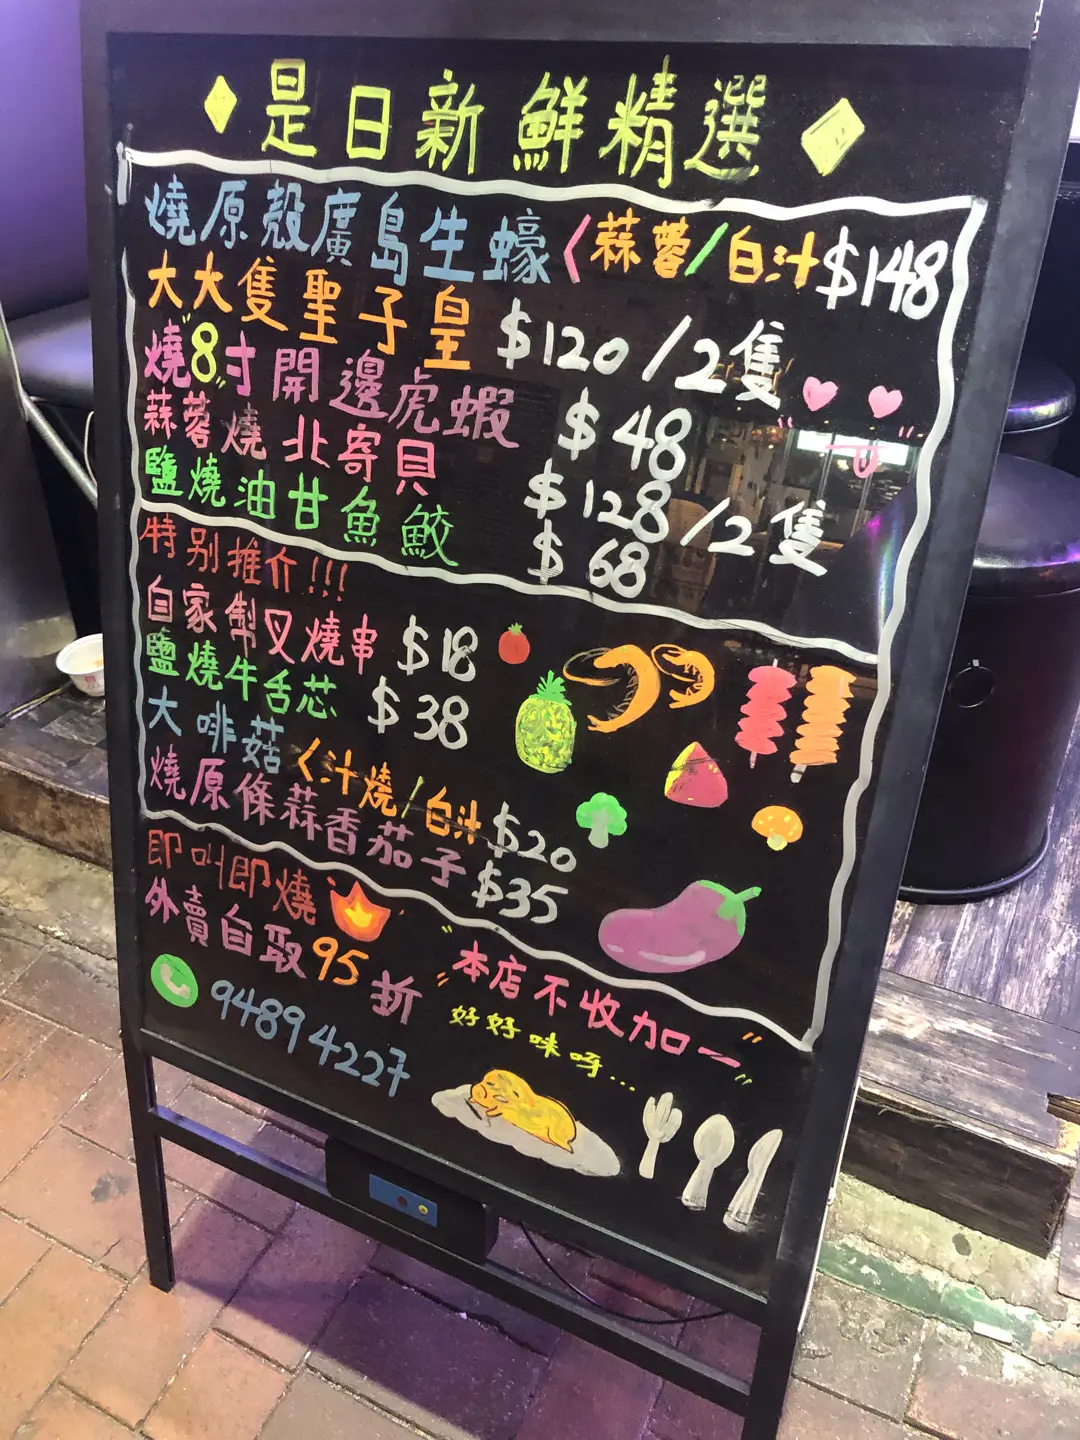 是日新鮮精選
燒原殼廣島生蠔〈蒜蓉/白汁 $148
大大隻聖子皇 $120/2隻
燒"8"寸開邊虎蝦 $48
蒜蓉燒北寄貝 $128/2隻
鹽燒油甘魚鮫 $68
特别推介!!!
自家製叉燒串 $18
鹽燒牛舌芯 $38
大啡菇〈汁燒/白汁 $20
燒原條蒜香茄子 $35
即叫即燒
外賣自取95折
94894227
"本店不收加一"
好好味呀...